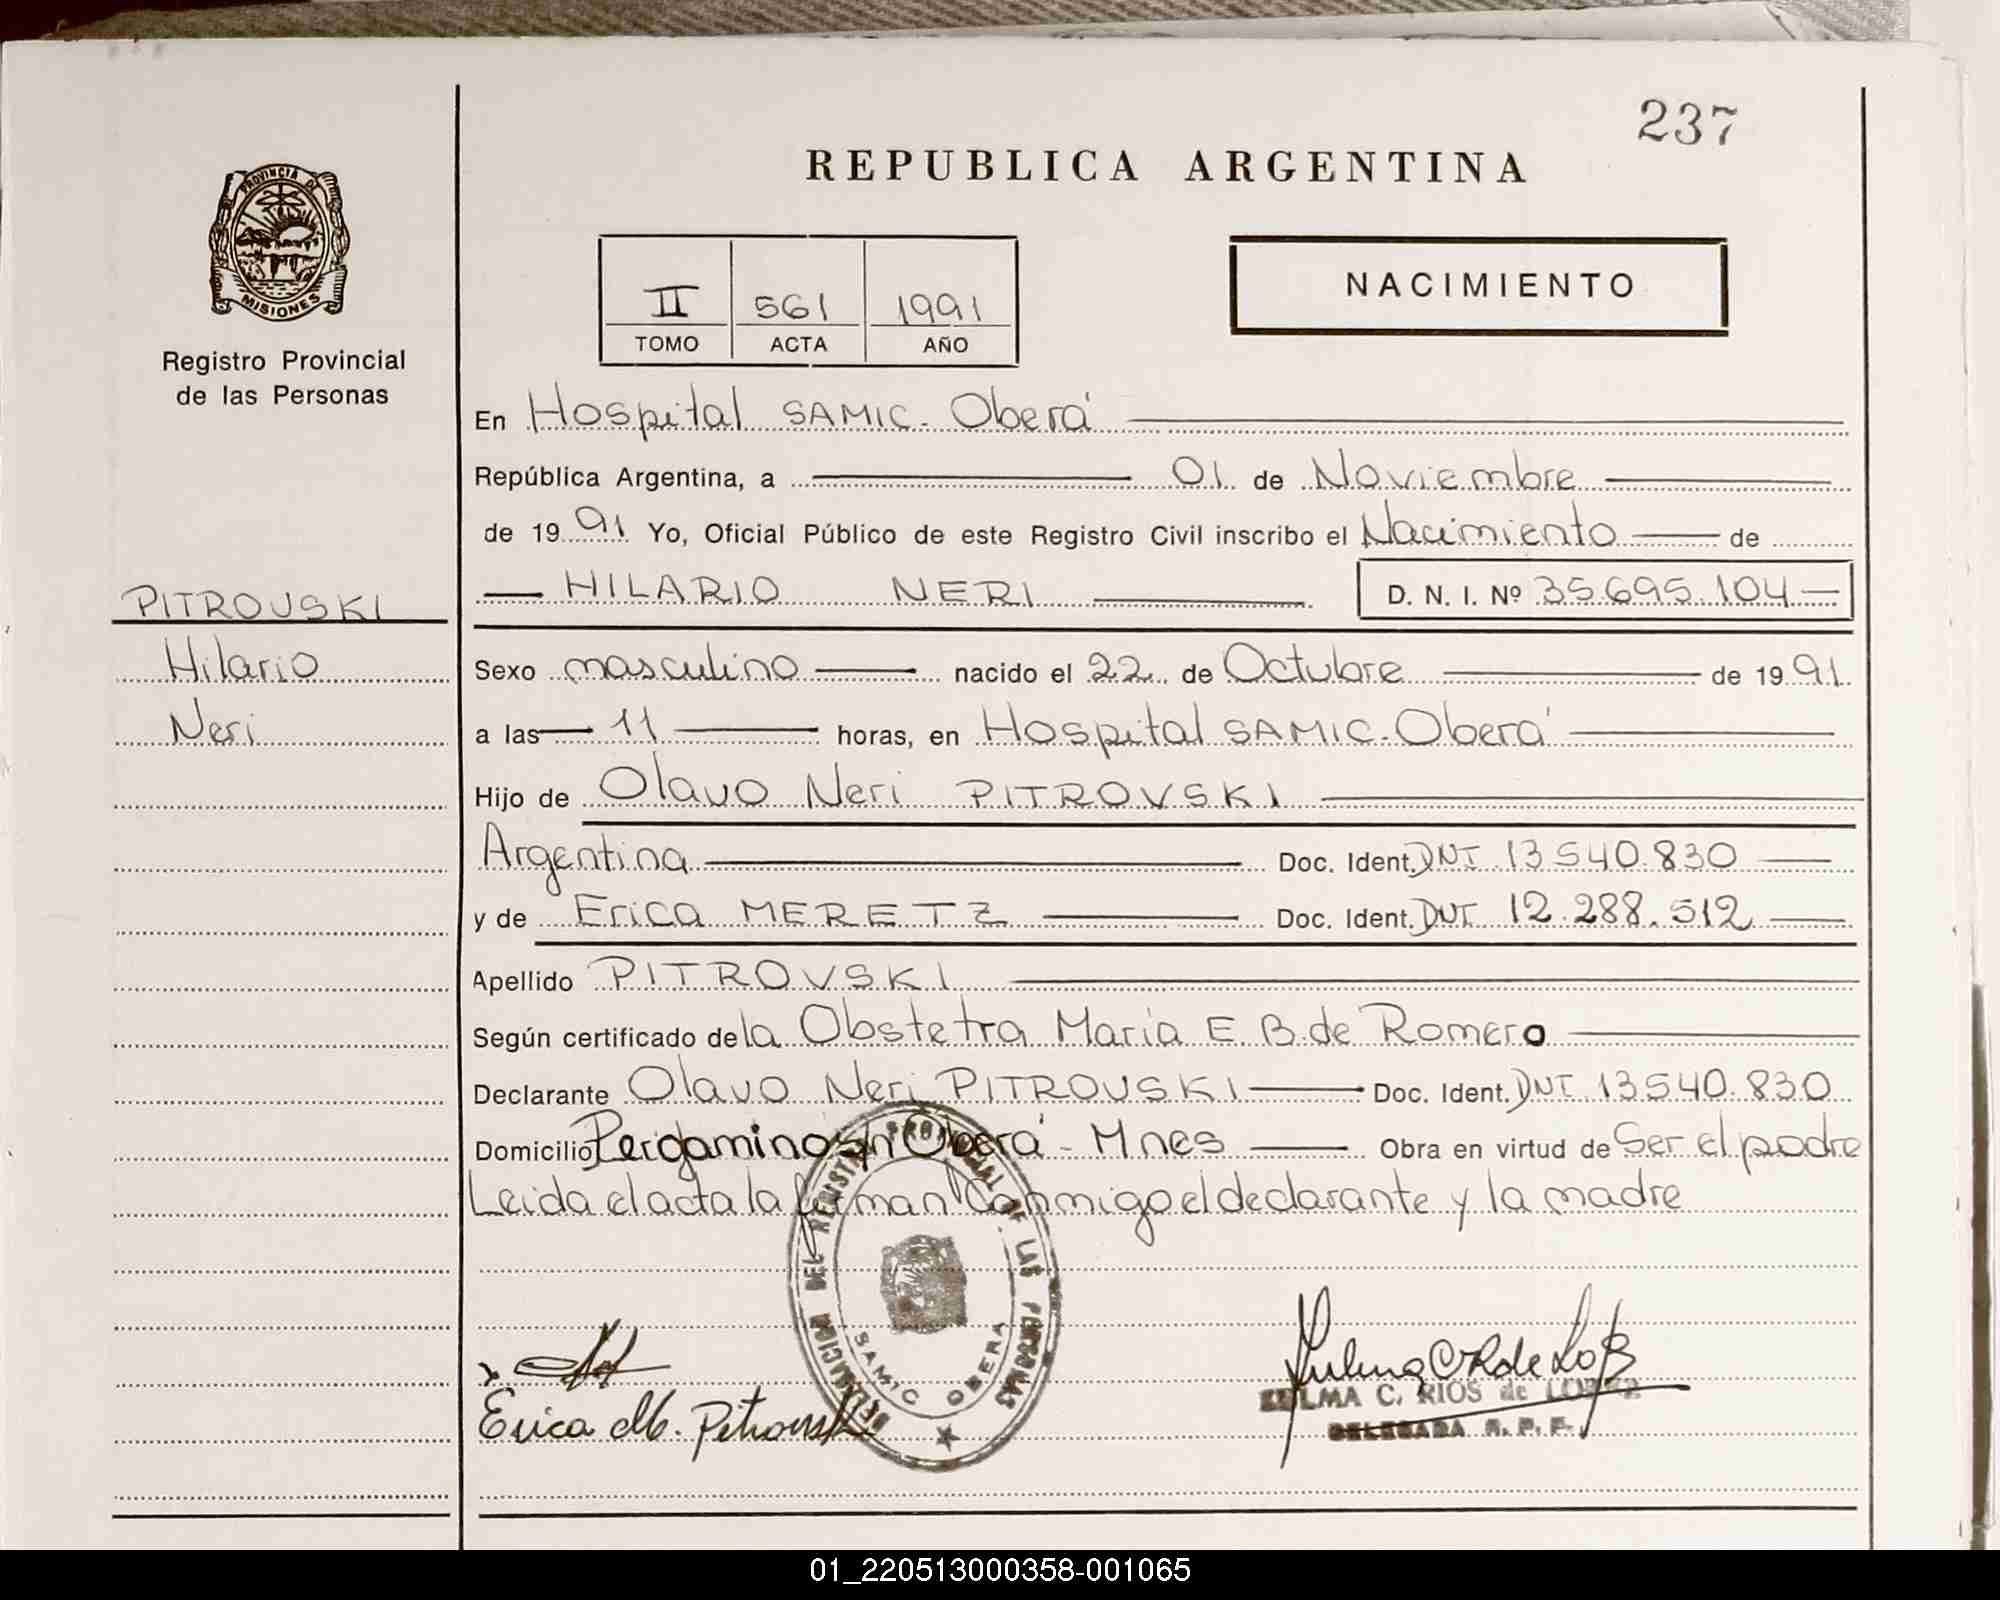 237
REPUBLICA ARGENTINA
PROVINCIA DE
MISIONES
Registro Provincial
de las Personas
II 561 1991
TOMO ACTA AÑO
NACIMIENTO
En Hospital SAMIC. Oberá
República Argentina, a 01 de Noviembre
de 1991 Yo, Oficial Público de este Registro Civil inscribo el Nacimiento de
HILARIO NERI D. N. I. Nº 35.695.104
PITROVSKI
Hilario
Neri
Sexo masculino nacido el 22 de Octubre de 1991
a las 11 horas, en Hospital SAMIC. Oberá
Hijo de Olavo Neri PITROVSKI
Argentina Doc. Ident. DNI 13540.830
y de Erica MERETZ Doc. Ident. DNI 12.288.512
Apellido PITROVSKI
Según certificado de la Obstetra María E. B. de Romero
Declarante Olavo Neri PITROVSKI Doc. Ident. DNI 13540.830
Domicilio Pergamino s/n Oberá - Mnes Obra en virtud de Ser el padre
Leida el acta la firman Conmigo el declarante y la madre
DELEGACION DEL REGISTRO PROVINCIAL DE LAS PERSONAS
SAMIC OBERA
Erica M. Pitrovski
ZULMA C. RIOS de LOPEZ
DELEGADA R. P. P.
01_220513000358-001065